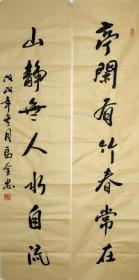 亭閑有竹春常在
山靜無人水自流
戊戌年冬月馬金忠